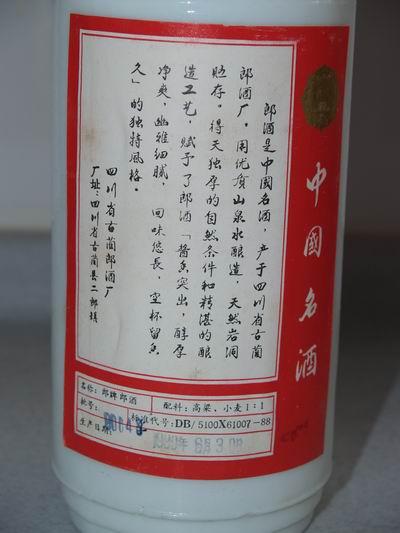 郎酒是中國名酒，产于四川省古蔺
郎酒厂。用优质山泉水酿造，天然岩洞
贮存。得天独厚的自然条件和精湛的酿
造工艺，赋予了郎酒「酱香突出，醇厚
净爽，幽雅细腻，回味悠長，空杯留香
久」的独特風格。
四川省古藺郎酒厂
厂址：四川省古藺县二郎镇
中國名酒
名称：郎牌郎酒
配料：高梁、小麦1：1
批号：
标准代号：DB/5100X61007-88
生产日期：